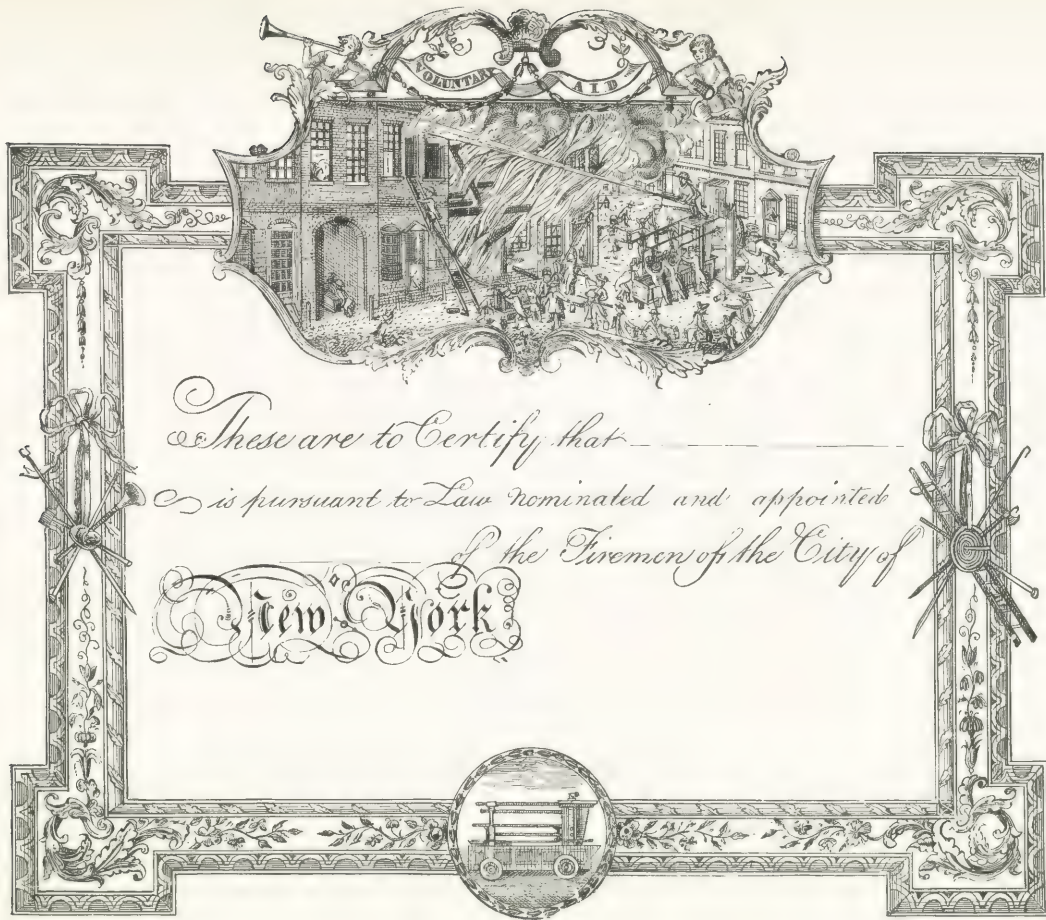 VOLUNTARY AID
These are to Certify that
is pursuant to Law nominated and appointed
of the Firemen of the City of
New York